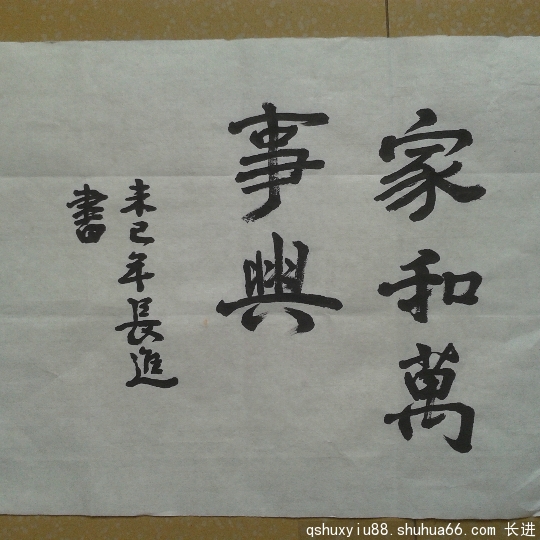 家和萬
事興
未已年長進
書
qshuxyiu88.shuhua66.com 长进